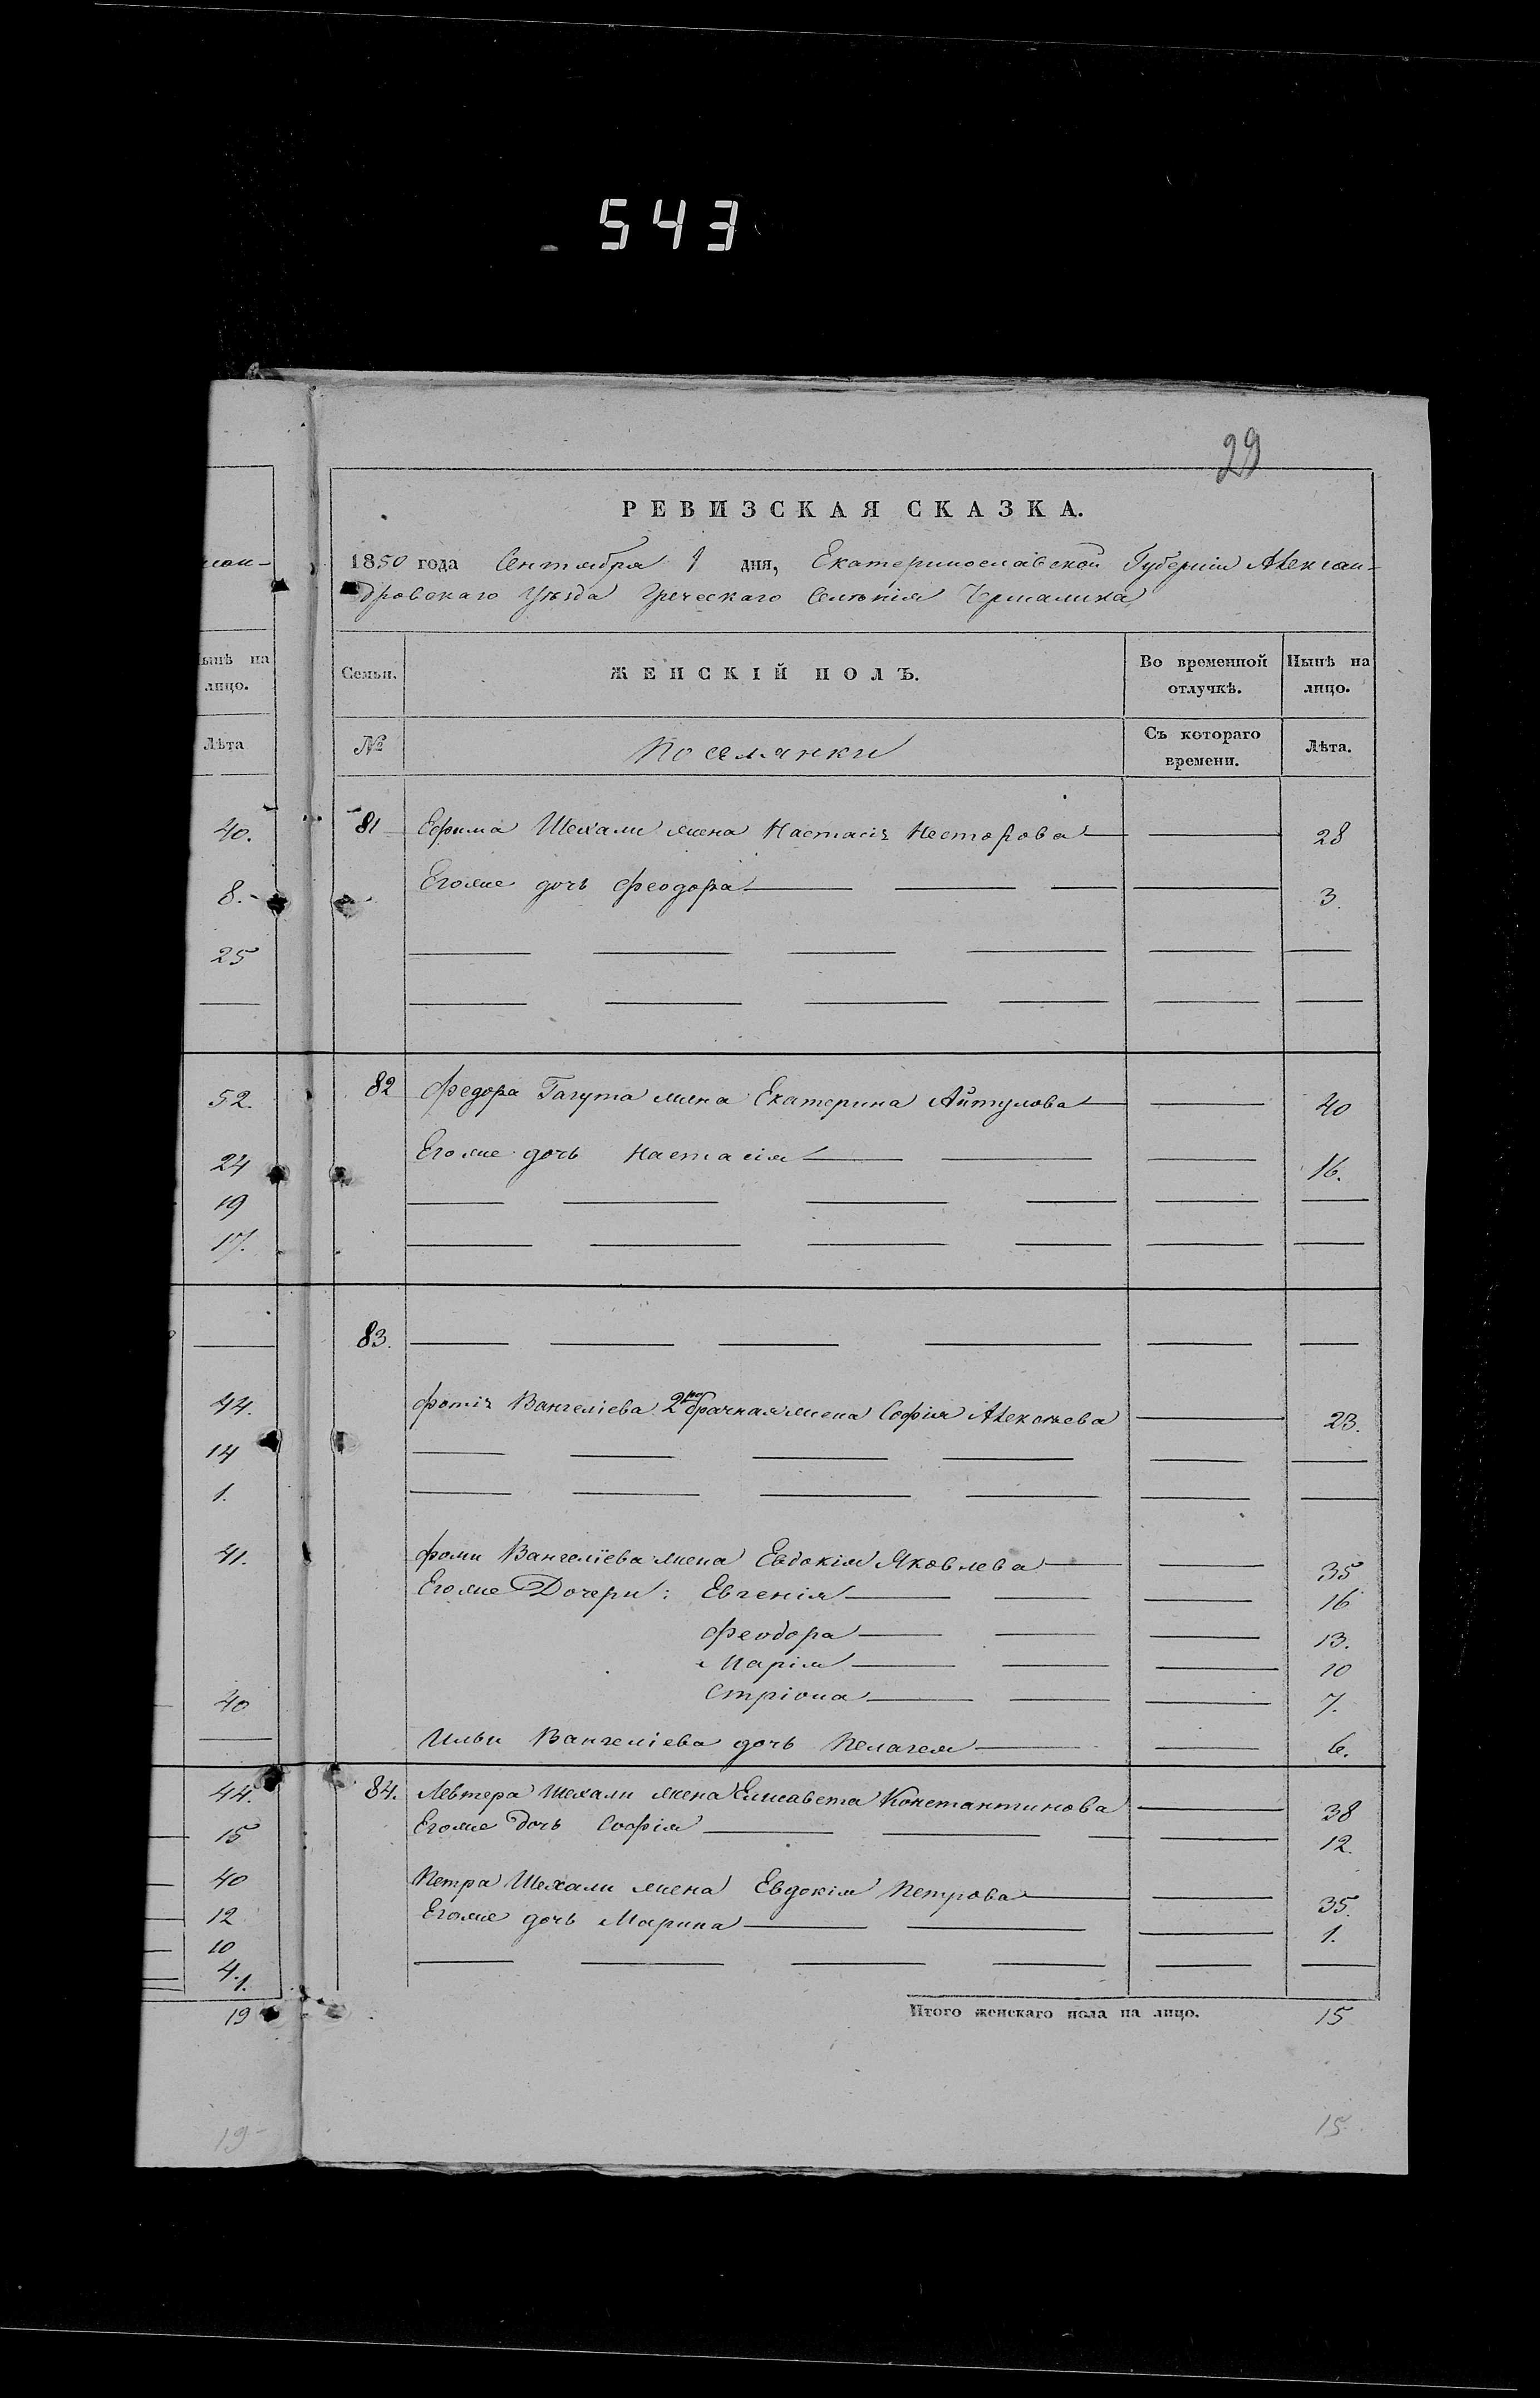 543
29
РЕВИЗСКАЯ СКАЗКА.
1850 года Сентября 1 дня, Екатеринославской Губерніи Алексан-
дровскаго Уѣзда Греческаго Селѣнія Чермалика
Семьи. ЖЕНСКІЙ ПОЛЪ. Во временной отлучкѣ. Нынѣ на лицо.
№ Поселянки Съ котораго времени. Лѣта.
81 Ефима Шехали жена Настасія Несторова 28
Егоже дочь Феодора 3.
82 Федора Гагута жена Екатерина Айтулова 40
Егоже дочь Настасія 16.
83.
Фотія Вангеліева 2ро брачная жена Софія Алексѣева 23.
Фомы Вангеліева жена Евдокія Яковлева 35
Егоже Дочери: Евгенія 16
Феодора 13.
Марія 10
Стріона 7.
Ильи Вангеліева дочь Пелагея 6.
84. Левтера Шехали жена Елисавета Константинова 38
Егоже дочь Софія 12.
Петра Шехали жена Евдокія Петрова 35.
Егоже дочь Марина 1.
Итого женскаго пола на лицо. 15
15.
сан-
Нынѣ на
лицо.
Лѣта
40.
8.
25
52.
24
19
17.
44.
14
1.
41.
40
44.
15
40
12
10
4.
1.
19
19